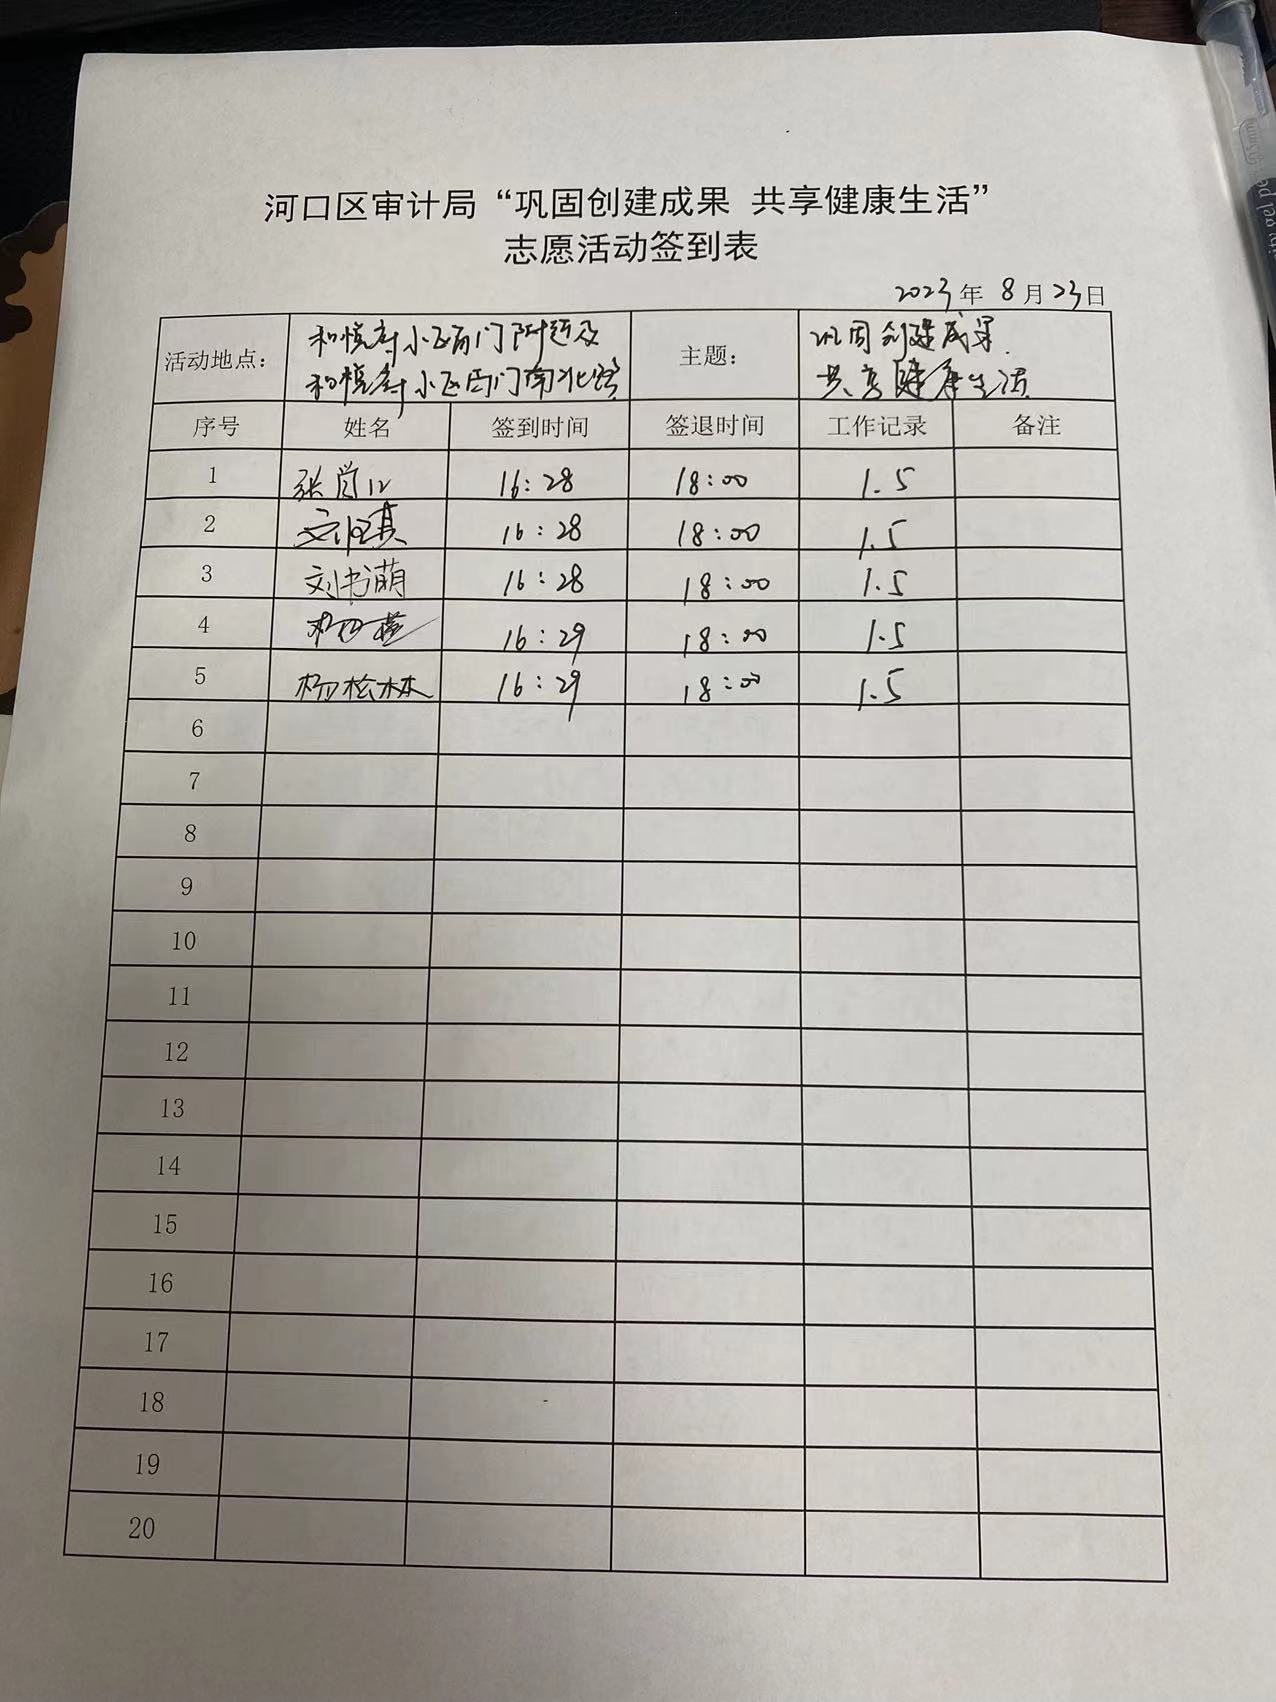 河口区审计局“巩固创建成果 共享健康生活”
志愿活动签到表
2023年 8月23日
活动地点： 和悦府小区南门附近及 主题： 巩固创建成果
和悦府小区西门南北路 共享健康生活
序号 姓名 签到时间 签退时间 工作记录 备注
1 16:28 18:00 1.5
2 16:28 18:00 1.5
3 刘书萌 16:28 18:00 1.5
4 16:29 18:00 1.5
5 杨松林 16:29 18:00 1.5
6
7
8
9
10
11
12
13
14
15
16
17
18
19
20